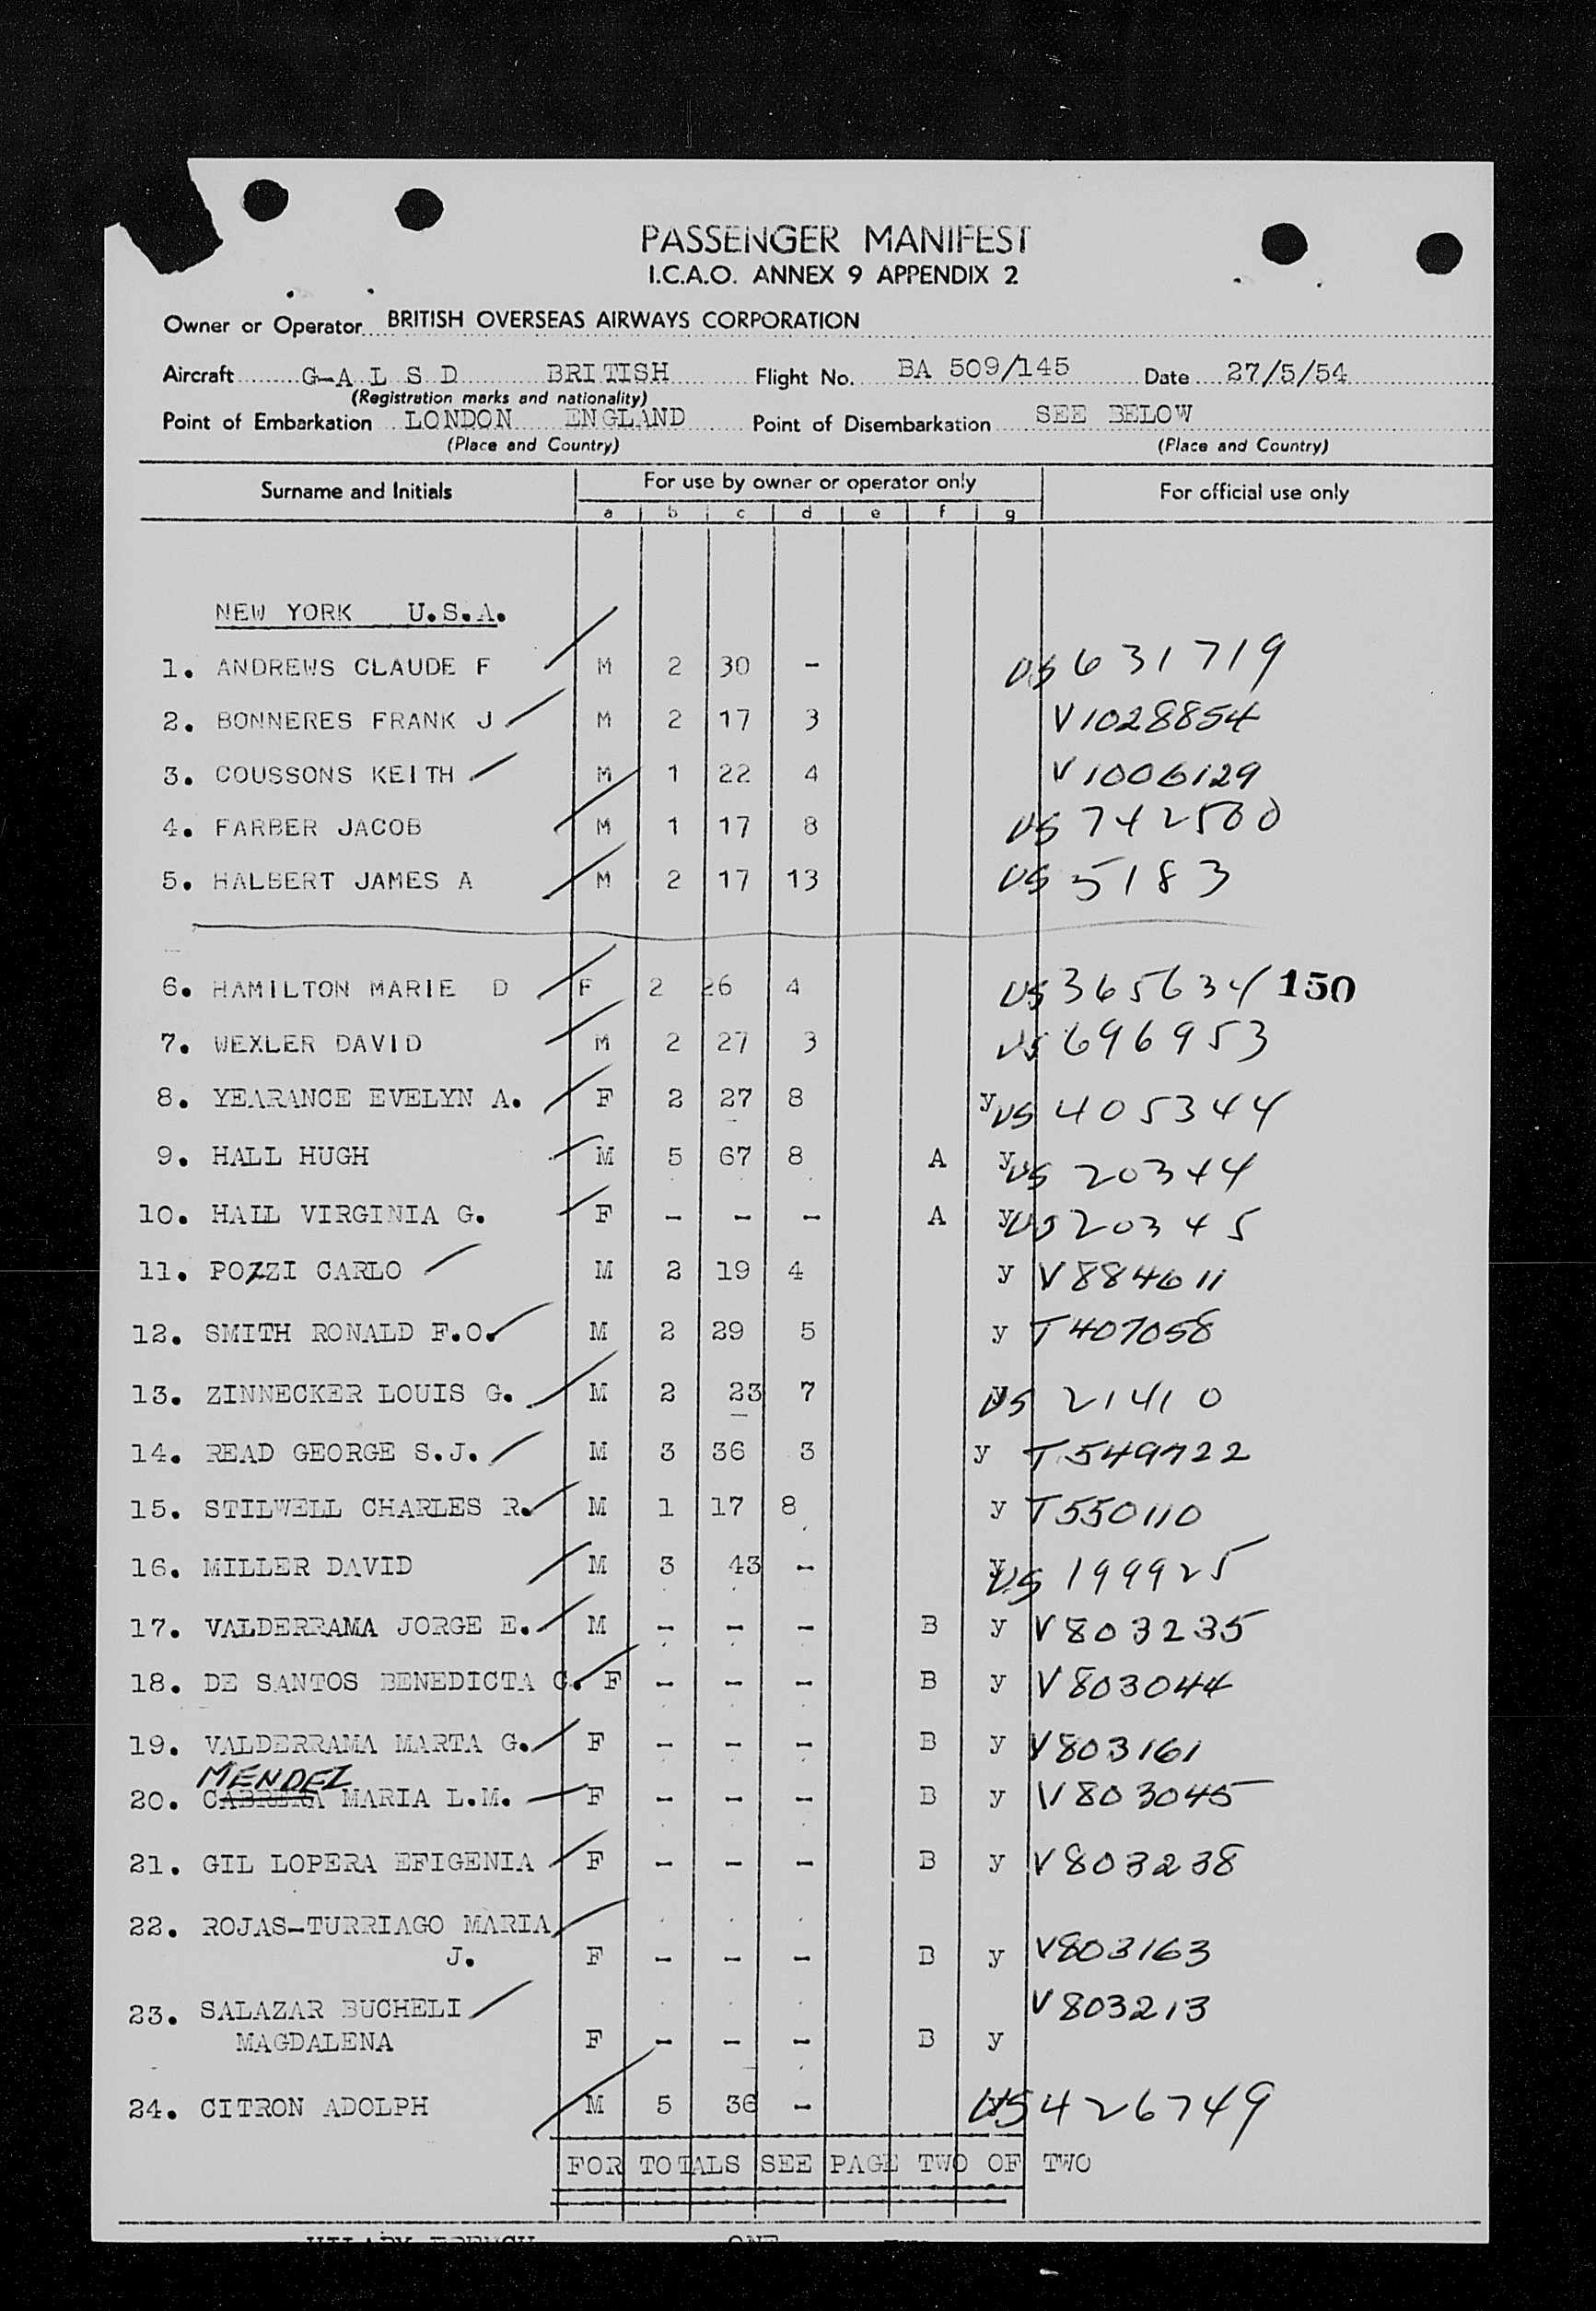 PASSENGER MANIFEST
I.C.A.O. ANNEX 9 APPENDIX 2
Owner or Operator BRITISH OVERSEAS AIRWAYS CORPORATION
Aircraft G-A L S D BRITISH Flight No. BA 509/145 Date 27/5/54
(Registration marks and nationality)
Point of Embarkation LONDON ENGLAND Point of Disembarkation SEE BELOW
(Place and Country) (Place and Country)
Surname and Initials For use by owner or operator only For official use only
a b c d e f g
NEW YORK U.S.A.
1. ANDREWS CLAUDE F M 2 30 - US 631719
2. BONNERES FRANK J M 2 17 3 V1028854
3. COUSSONS KEITH M 1 22 4 V1006129
4. FARBER JACOB M 1 17 8 US 742500
5. HALBERT JAMES A M 2 17 13 US 5183
6. HAMILTON MARIE D F 2 26 4 US 365634 150
7. WEXLER DAVID M 2 27 3 US 696953
8. YEARANCE EVELYN A. F 2 27 8 y US 405344
9. HALL HUGH M 5 67 8 A y US 20344
10. HALL VIRGINIA G. F - - - A y US 20345
11. POZZI CARLO M 2 19 4 y V884611
12. SMITH RONALD F.O. M 2 29 5 y T407058
13. ZINNECKER LOUIS G. M 2 23 7 y US 21410
14. READ GEORGE S.J. M 3 36 3 y T549722
15. STILWELL CHARLES R. M 1 17 8 y T550110
16. MILLER DAVID M 3 43 - y US 199925
17. VALDERRAMA JORGE E. M - - - B y V803235
18. DE SANTOS BENEDICTA C. F - - - B y V803044
19. VALDERRAMA MARTA G. F - - - B y V803161
MENDEZ
20. CABRERA MARIA L.M. F - - - B y V803045
21. GIL LOPERA EFIGENIA F - - - B y V803238
22. ROJAS-TURRIAGO MARIA
J. F - - - B y V803163
23. SALAZAR BUCHELI V803213
MAGDALENA F - - - B y
24. CITRON ADOLPH M 5 36 - y US 426749
FOR TOTALS SEE PAGE TWO OF TWO